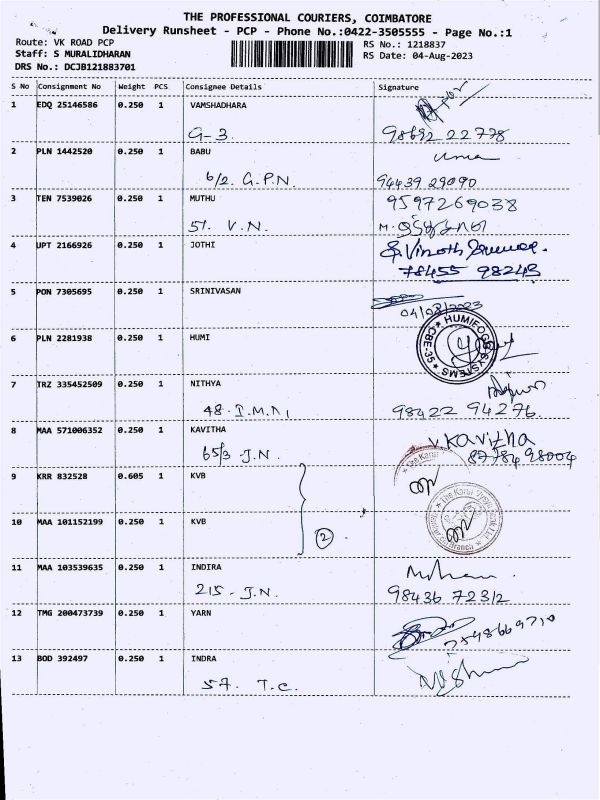 THE PROFESSIONAL COURIERS, COIMBATORE
Delivery Runsheet - PCP - Phone No.:0422-3505555 - Page No.:1
Route: VK ROAD PCP
RS No.: 1218837
Staff: S MURALIDHARAN
RS Date: 04-Aug-2023
DRS No.: DCJB121883701
S No Consignment No Weight PCS Consignee Details Signature
1 EDQ 25146586 0.250 1 VAMSHADHARA
G-3. 98692 22778
2 PLN 1442520 0.250 1 BABU Uma
6/2. G.P.N. 94439 29090
3 TEN 7539026 0.250 1 MUTHU 9597269038
51. V.N.
4 UPT 2166926 0.250 1 JOTHI
78455 98243
5 PON 7305695 0.250 1 SRINIVASAN
04/08/2023
6 PLN 2281938 0.250 1 HUMI
HUMIFOG SYSTEMS
CBE-35
7 TRZ 335452509 0.250 1 NITHYA
48. I.M.N, 98422 94276.
8 MAA 571006352 0.250 1 KAVITHA V KAVITHA
65/3 J.N. 87784 98004
9 KRR 832528 0.605 1 KVB
The Karur
10 MAA 101152199 0.250 1 KVB
2
The Karur Vysya Bank Ltd
Branch
11 MAA 103539635 0.250 1 INDIRA Mohan.
215 - J.N. 98436 72312
12 TMG 200473739 0.250 1 YARN
7598669710
13 BOD 392497 0.250 1 INDRA
57. T.C.